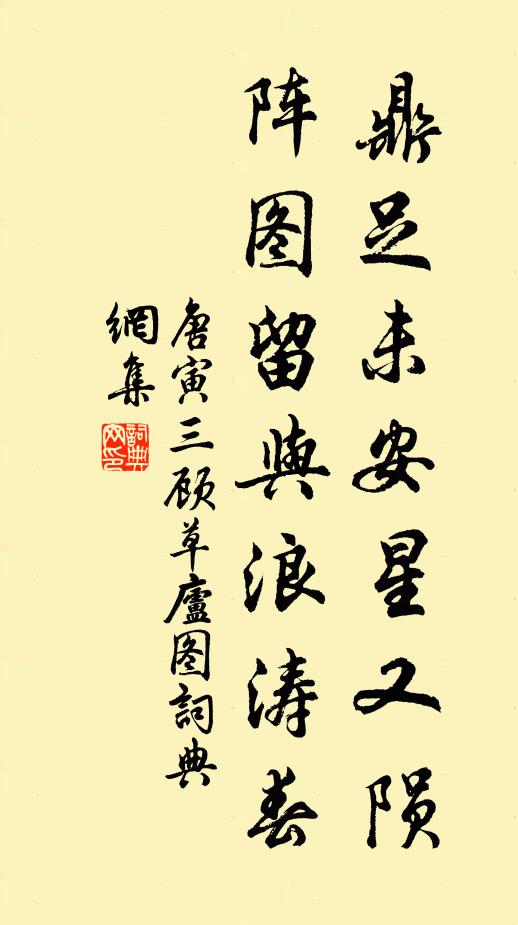 鼎足未安星又陨
阵图留與浪涛舂
唐寅三顾草廬图詞典
網集
詞典
网印